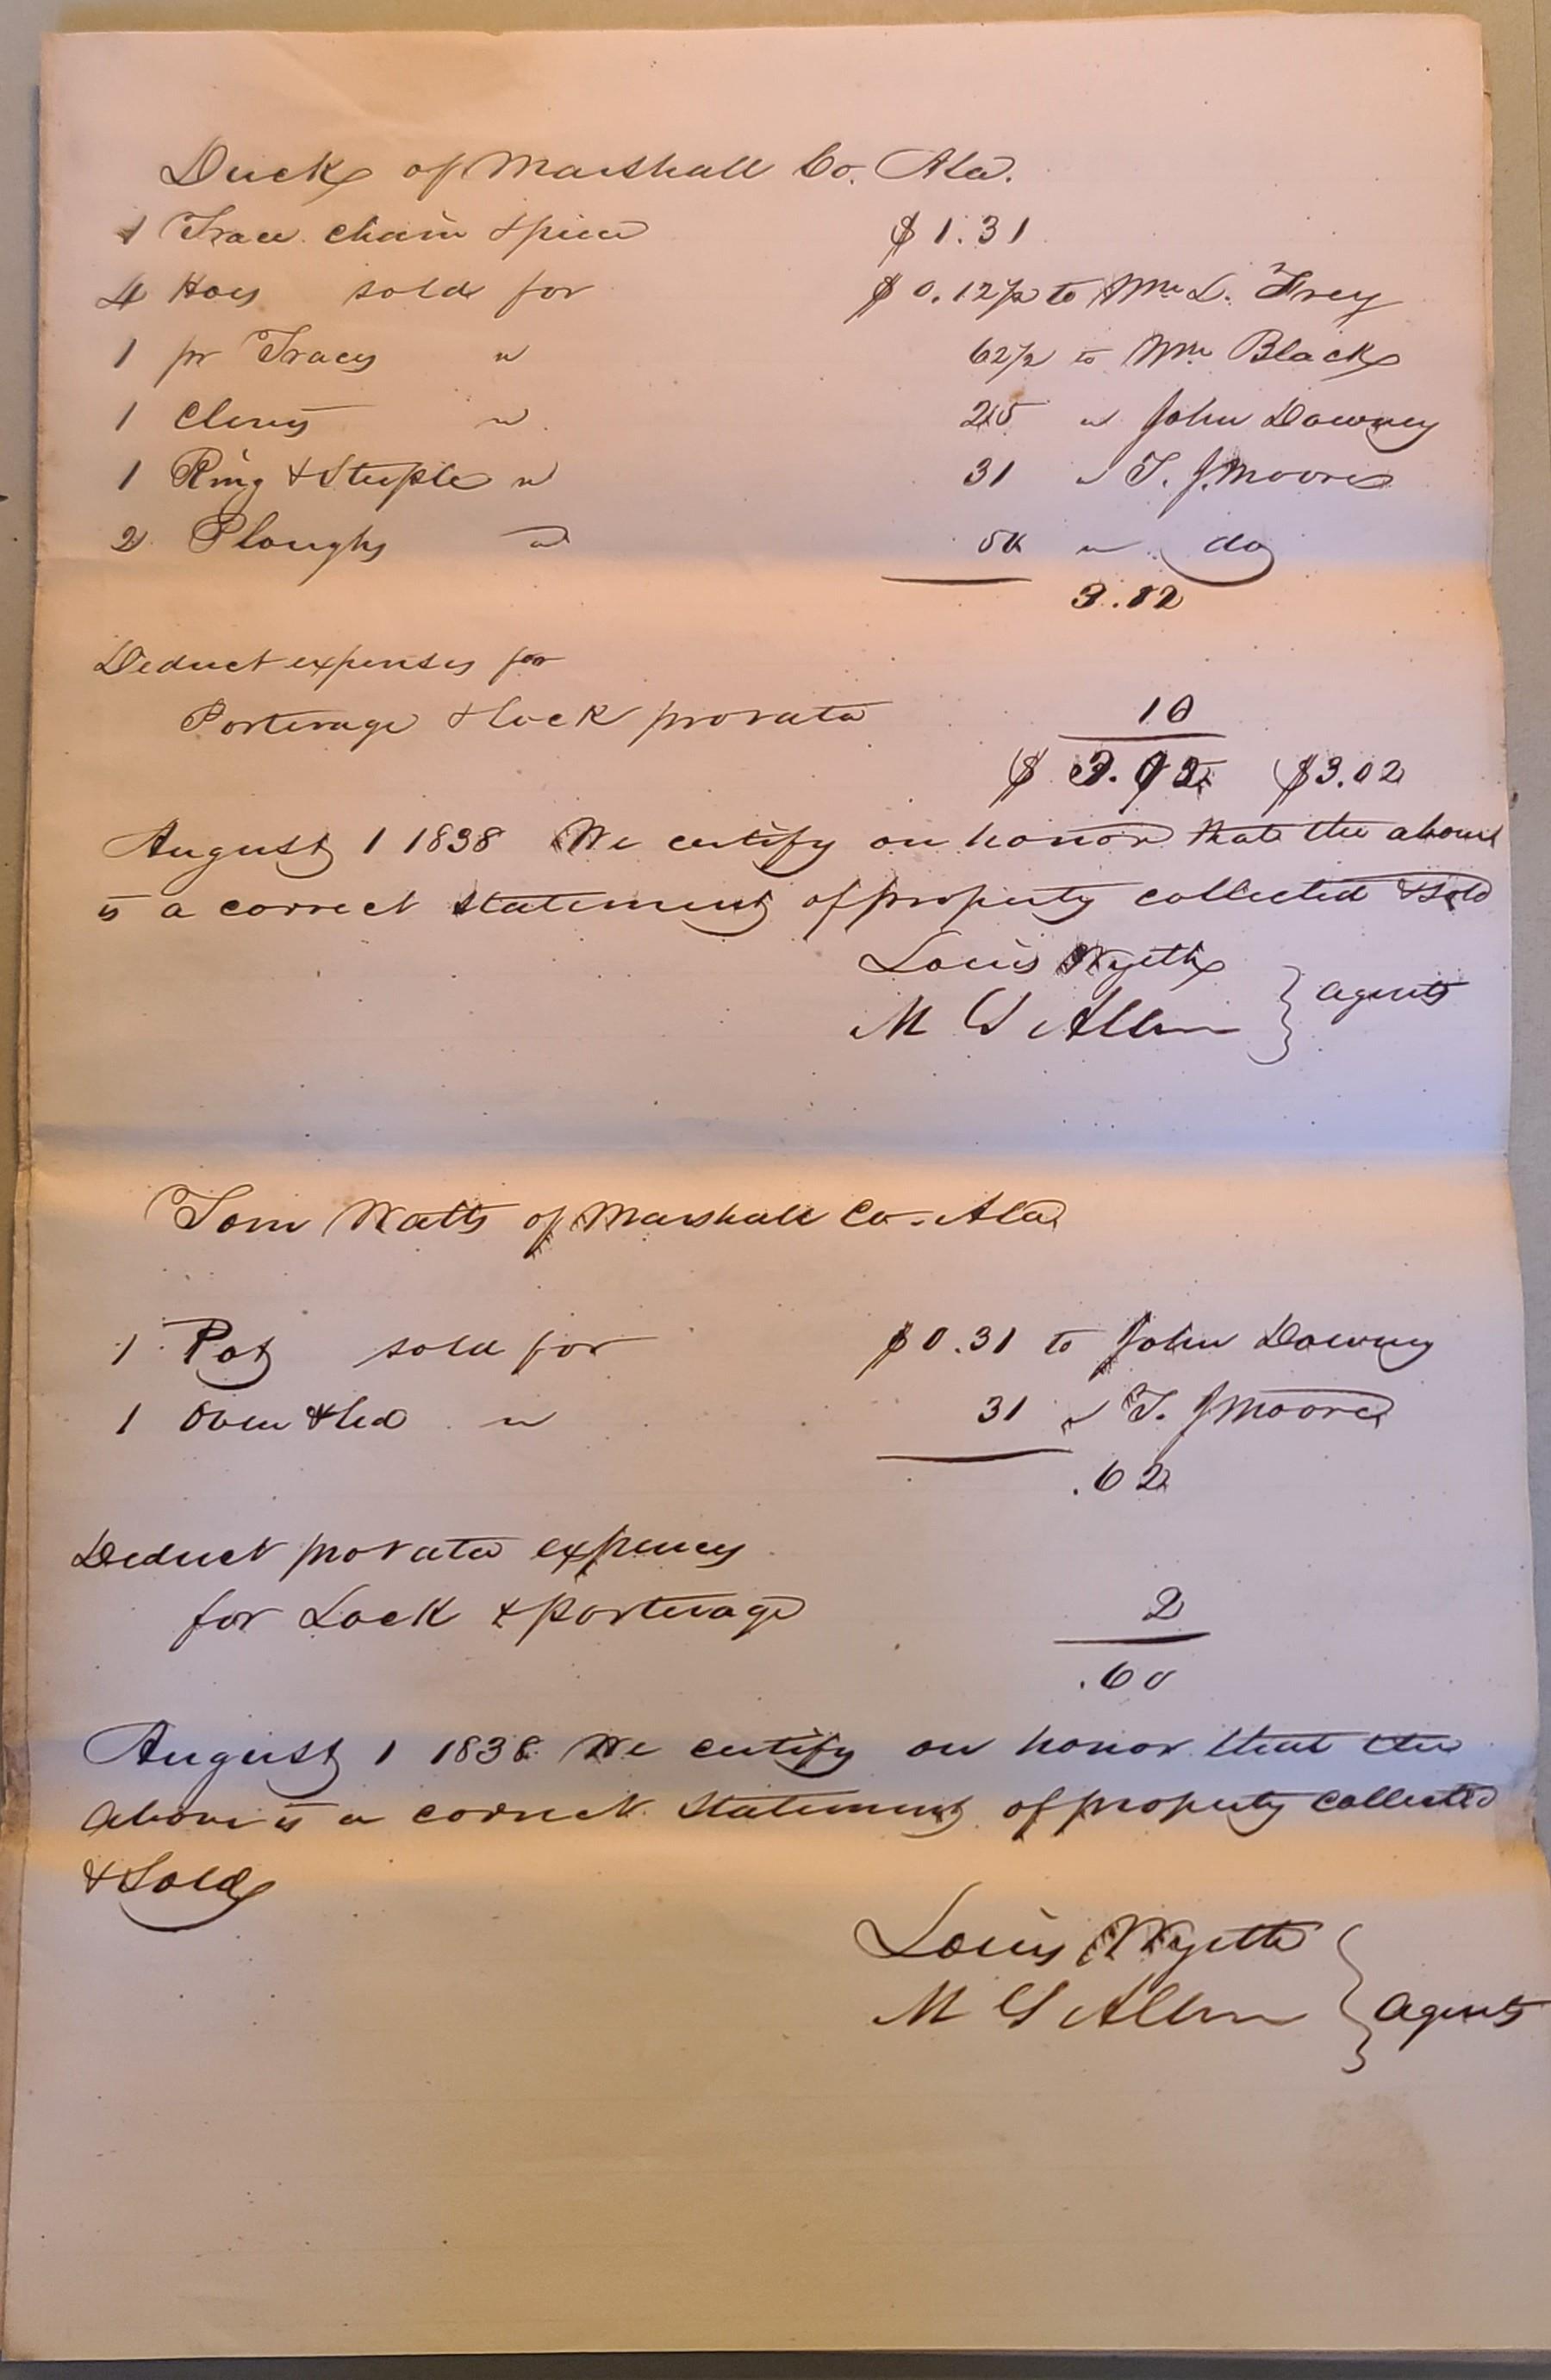 Duck of Marshall Co. Ala.
1 Trace chain & piece $1.31
4 Hoes sold for $0.12½ to Wm L. Frey
1 pr Traces " 62½ to Wm Black
1 Clevis " 25 " John Downey
1 Ring & Steeple " 31 " T. J. Moore
2 Ploughs " 50 " do
3.12
Deduct expenses for
Porterage & lock prorata 10
$ 3.02 $3.02
August 1 1838 We certify on honor that the above
is a correct statement of property collected & sold
Louis Wyeth
M G Allen } agents
Tom Watts of Marshall Co. Ala
1 Pot sold for $0.31 to John Downey
1 Oven & led " 31 " T. J Moore
.62
Deduct prorata expences
for Lock & porterage 2
.60
August 1 1838 We certify on honor that the
above is a correct statement of property collected
& Sold
Louis Wyeth
M G Allen } agents